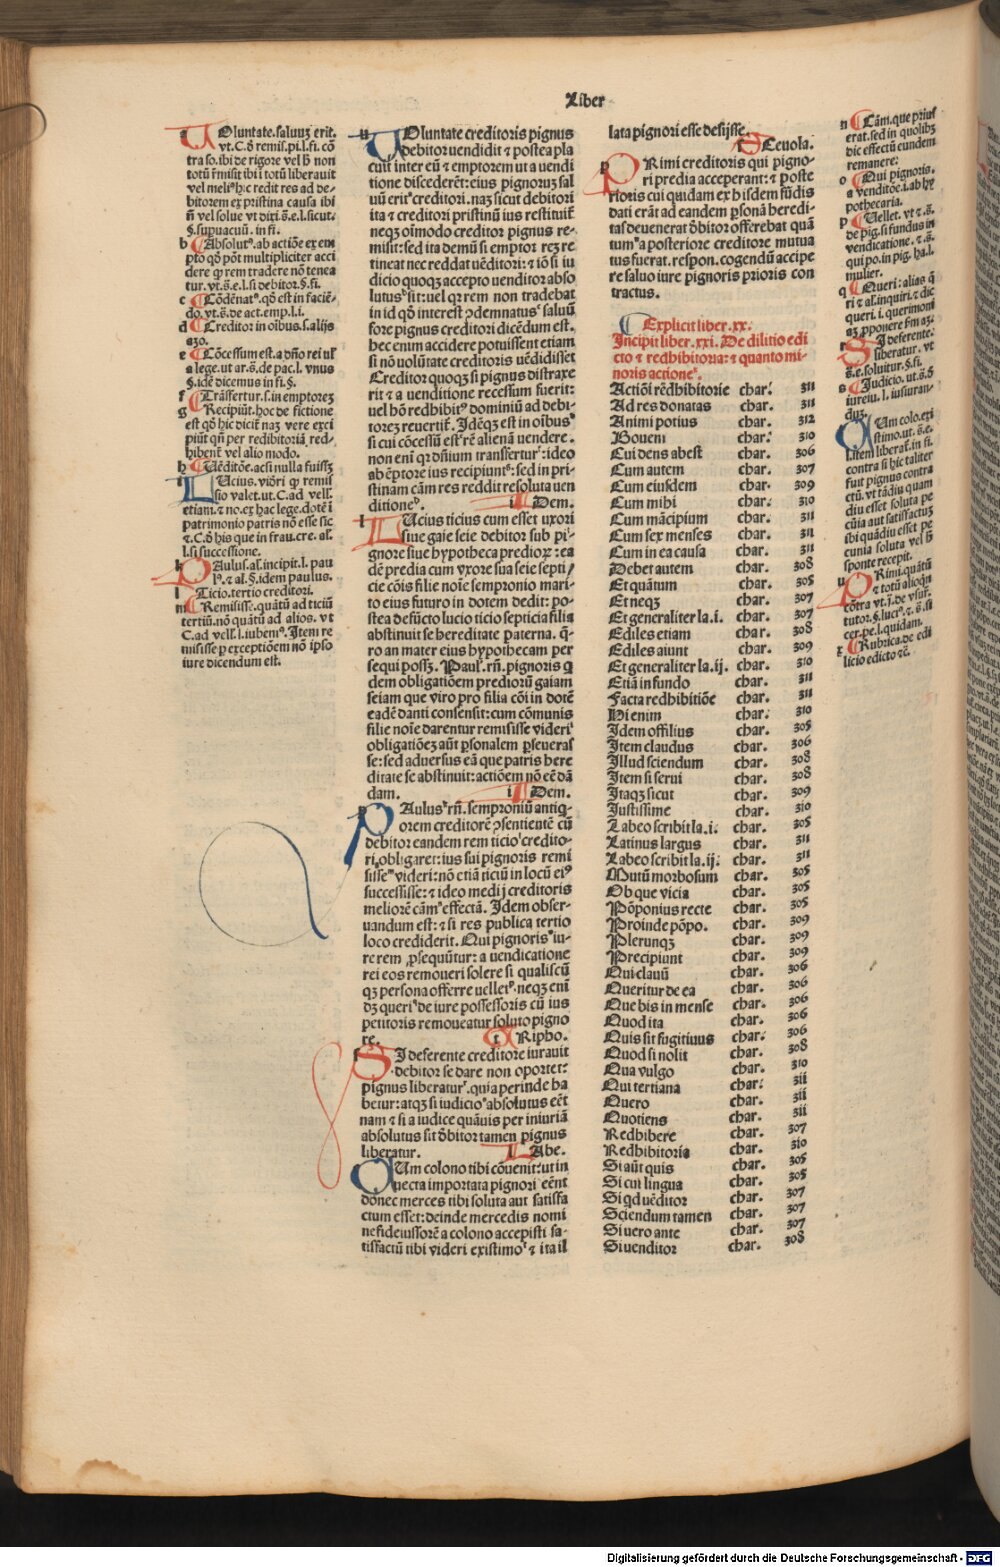 Liber
Oluntate.saluuȝ erit.
vt.C.ꝺ remis.pi.l.fi.cō
tra so.ibi de rigore vel ꝺ non
totū r̄misit ibi i totū liberauit
vel meliꝰ hic redit res ad de-
bitorem ex pristina causa ibi
n̄ vel solue vt dixi.s̄.e.l.sicut.
§.supuacuū.in fi.
b Absolutꝰ.ab actiōe ex em
pto qȝ pōt multipliciter acci
dere ꝙ rem tradere nō tenea
tur.vt.s̄.e.l.si debitor.§.fi.
c Cōdēnatꝰ.qȝ est in faciē-
do.vt.s̄.de act.emp.l.i.
d Creditor in oībus.s.alijs
azo.
e Cōcessum est.a dn̄o rei vl̓
a lege.ut ar.s̄.de pac.l. vnus
§.ide dicemus in fi.§.
f Trāsfertur.s.in emptoreȝ
g Recipiūt.hoc de fictione
est qȝ hic dicit̄ naȝ vere exci
piūt qn̄ per redibitoriā red-
hibent̄ vel alio modo.
h Uēditōe.acsi nulla fuissȝ
i Lucius.viōri ꝙ remis
sio valet.ut.C.ad vell.
etiam.⁊ no.ex hac lege.dotē ī
patrimonio patris nō esse sic
⁊.C.ꝺ his que in frau.cre. al̓.
l.si successione.
k Paulus.al̓.incipit.l. pau
lꝰ.⁊ al̓.§.idem paulus.
l Ticio.tertio creditori.
m Remisisse.quātū ad ticiū
tertiū.nō quātū ad alios. vt
C.ad vell̓.l.iubemꝰ. Item re
misisse p exceptiōem nō ipso
iure dicendum est.
Uoluntate creditoris pignus
debitor uendidit ⁊ postea pla
cuit inter eū ⁊ emptorem ut a uendi
tione discederēt:eius pignoruȝ sal
uū eritꝰcreditori.naȝ sicut debitori
ita ⁊ creditori pristinū ius restituit̄
neqȝ oīmodo creditor pignus re-
misit:sed ita demū si emptor reȝ re
tineat nec reddat uēditori:⁊ iō si iu
dicio quoqȝ accepto uenditor abso
lutusᵇsit:uel qꝛ rem non tradebat
in id qȝ interest ꝯdemnatusᶜsaluū
fore pignus creditori dicēdum est.
hec enim accidere potuissent etiam
si nō uolūtate creditoris uēdidisset
Creditor quoqȝ si pignus distraxe
rit ⁊ a uenditione recessum fuerit:
uel hō redhibitꝰ dominiū ad debi-
toreȝ reuertit̄. Idēqȝ est in oībusᵈ
si cui cōcessū estᵉrē alienā uendere.
non enī qꝛ dn̄ium transferturᶠ:ideo
ab ēptore ius recipiuntᵍ:sed in pri-
stinam cām res reddit̄ resoluta uen
ditioneʰ. iDem.
Lucius ticius cum esset uxori
sue gaie seie debitor sub pi-
gnore siue hypotheca predioꝝ: ea
dē predia cum vxore sua seie septi
cie cōis filie noīe sempronio mari-
to eius futuro in dotem dedit: po-
stea defūcto lucio ticio septicia filia
abstinuit se hereditate paterna. q̄-
ro an mater eius hypothecam per
sequi possȝ. Paulꝰ.rn̄.pignoris q
dem obligatiōem predioꝝ gaiam
seiam que viro pro filia cōi in dotē
eadē danti consensit:cum cōmunis
filie noīe darentur remisisse videri
obligatiōeȝ aūt ꝑsonalem ꝑseueras
se:sed aduersus eā que patris here
ditate se abstinuit:actiōem nō eē dā
dam. iDem.
PAulusᵏrn̄.semproniū antiq-
orem creditorē ꝯsentientē cū
debitor eandem rem ticioˡcredito-
ri obligaret:ius sui pignoris remi
sisseᵐvideri:nō etiā ticiū in locū eiꝰ
successisse:⁊ ideo medij creditoris
meliorē cāmⁿeffectā. Idem obser-
uandum est:⁊ si res publica tertio
loco crediderit. Qui pignorisᵒiu-
re rem ꝑsequūtur: a uendicatione
rei eos remoueri solere si qualiscū
qȝ persona offerre uelletᵖ.neqȝ enī
dȝ queri de iure possessoris cū ius
petitoris remoueatur soluto pigno
re. tRipho.
SI deferente creditore iurauit
debitor se dare non oportet:
pignus liberatur.quia perinde ha
betur:atqȝ si iudicio absolutus eēt
nam ⁊ si a iudice quāuis per iniuriā
absolutus sit ꝺbitor tamen pignus
liberatur. lAbe.
QUm colono tibi cōuenit:ut in
uecta importata pignori eēnt
donec merces tibi soluta aut satisfa
ctum esset:deinde mercedis nomi
ne fideiussorē a colono accepisti sa-
tisfactū tibi videri existimoᵗ⁊ ita il
lata pignori esse desijsse.
sCeuola.
PRimi creditoris qui pigno-
ri predia acceperant:⁊ poste
rioris cui quidam ex hisdem fūdis
dati erāt ad eandem ꝑsonā heredi-
tas deuenerat ꝺbitor offerebat quā
tumᵘa posteriore creditore mutua
tus fuerat.respon.cogendū accipe
re saluo iure pignoris prioris con
tractus.
Explicit liber.xx.
Incipit liber.xxi.De dilitio edi
cto ⁊ redhibitoria:⁊ quanto mi-
noris actione.
Actiōi rēdhibitorie char. 311
Ad res donatas char. 311
Animi potius char. 312
Bouem char. 310
Cui dens abest char. 306
Cum autem char. 307
Cum eiusdem char. 309
Cum mihi char. 310
Cum mācipium char. 311
Cum sex menses char. 311
Cum in ea causa char. 311
Debet autem char. 308
Et quātum char. 305
Et neqȝ char. 307
Et generaliter la.i. char. 307
Ediles etiam char. 308
Ediles aiunt char. 309
Et generaliter la.ij. char. 310
Etiā in fundo char. 311
Facta redhibitiōe char. 311
Hi enim char. 310
Idem offilius char. 305
Item claudus char. 306
Illud sciendum char. 308
Item si serui char. 308
Itaqȝ sicut char. 309
Iustissime char. 310
Labeo scribit la.i. char. 305
Latinus largus char. 311
Labeo scribit la.ij. char. 311
Mutū morbosum char. 305
Ob que vicia char. 305
Pōponius recte char. 305
Proinde pōpo. char. 309
Plerunqȝ char. 309
Precipiunt char. 309
Qui clauū char. 306
Queritur de ea char. 306
Que bis in mense char. 306
Quod ita char. 306
Quis sit fugitiuus char. 306
Quod si nolit char. 308
Qua vulgo char. 310
Qui tertiana char. 311
Quero char. 311
Quotiens char. 311
Redhibere char. 307
Redhibitoria char. 310
Si aūt quis char. 305
Si cui lingua char. 305
Si qd uēditor char. 307
Sciendum tamen char. 307
Si uero ante char. 307
Si uenditor char. 308
n Cām.que priuſ
erat.sed in quolibȝ
dic effectū eundem
remanere:
o Qui pignoris.
a venditōe.i.ab hy
pothecaria.
p Uellet. vt ⁊.s̄.
de pig.si fundus in
vendicatione. ⁊.s̄.
qui po.in pig.ha.l.
mulier.
q Queri: alias q̄
ri ⁊ al̓.inquiri.⁊ dic
queri. i. querimoni
aȝ ꝓponere fm aȝ.
r SI deferente:
liberatur. vt
s̄.e.soluitur.§.fi.
s Iudicio.ut.s̄.ꝺ
iureiu. l. iusiuran-
duȝ.
QUm colo.exi
stimo.ut. s̄.e.
l.item liberat̄.in fi.
contra si hic taliter
fuit pignus contra
ctū. vt tādiu quam
diu esset soluta pe
cūia aut satisfactuȝ
ibi quādiu esset pe
cunia soluta vel ꝺ
sponte recepit.
u PRimi.quātū
⁊ totū alioqn̄
cōtra vt.j.de vsur.
tutor.§.lucꝰ.⁊.s̄.si
cer.pe.l.quidam.
x Rubrica.de edi
licio edicto ⁊c̄.
Digitalisierung gefördert durch die Deutsche Forschungsgemeinschaft - DFG